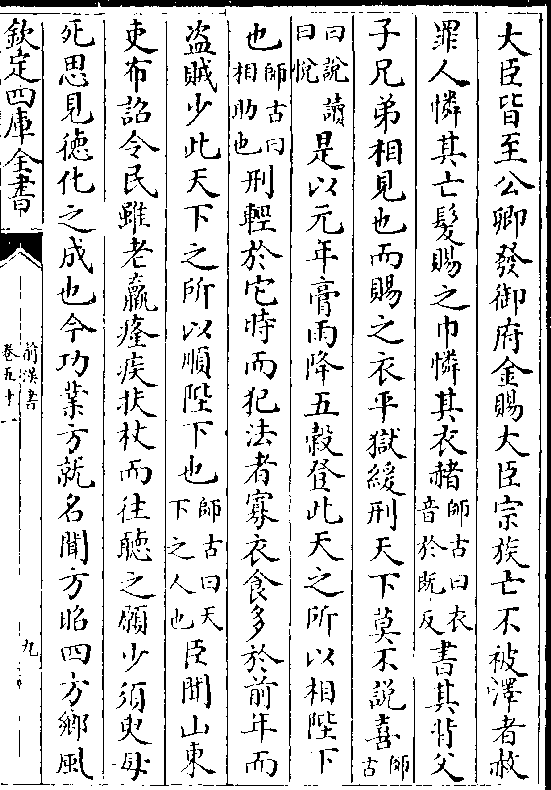 大臣皆至公卿發御府金賜大臣宗族亡不被澤者赦
罪人憐其亡髮賜之巾憐其衣赭師古曰衣音於既反書其背父
子兄弟相見也而賜之衣平獄緩刑天下莫不說喜師古
曰說讀曰恱是以元年膏雨降五穀登此天之所以相陛下
也師古曰相助也刑輕於它時而犯法者寡衣食多於前年而
盗賊少此天下之所以順陛下也師古曰天下之人也臣聞山東
吏布詔令民雖老羸癃疾扶杖而往聽之願少須臾毋
死思見德化之成也今功業方就名聞方昭四方鄉風
欽定四庫全書
前漢書
卷五十一
九